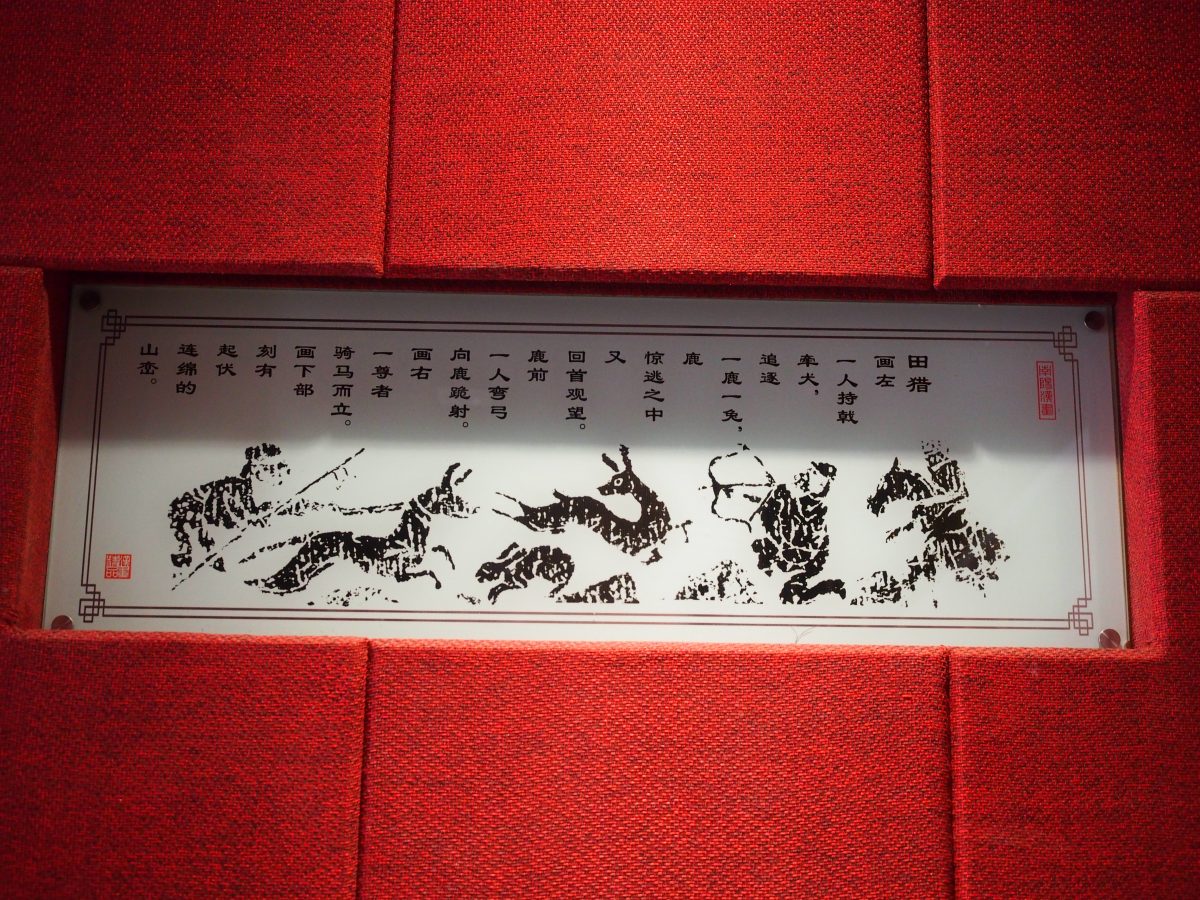 南陽漢畫
田猎
画左
一人持戟
牵犬，
追逐
一鹿一兔，
鹿
惊逃之中
又
回首观望。
鹿前
一人弯弓
向鹿跪射。
画右
一尊者
骑马而立。
画下部
刻有
起伏
连绵的
山峦。